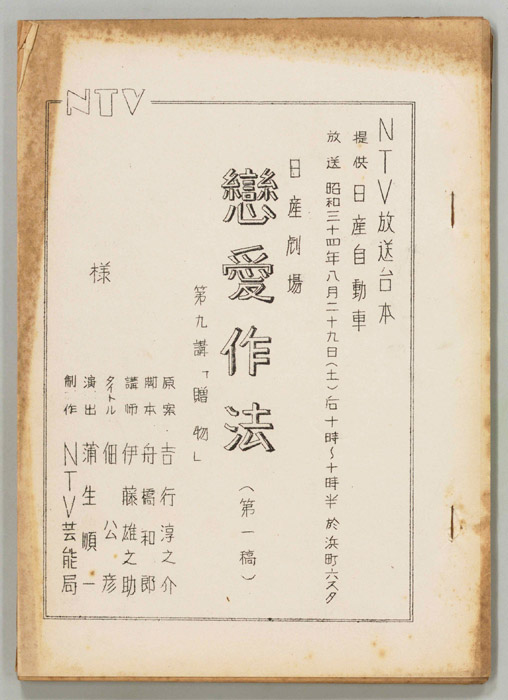 NTV
NTV放送台本
提供 日産自動車
放送 昭和三十四年八月二十九日(土)后十時〜十時半 於浜町六スタ
日産劇場
戀愛作法
(第一稿)
第九講「贈物」
原案・吉行淳之介
脚本 舟橋和郎
講師 伊藤雄之助
タイトル 佃公彦
演出 蒲生順一
制作 NTV芸能局
様